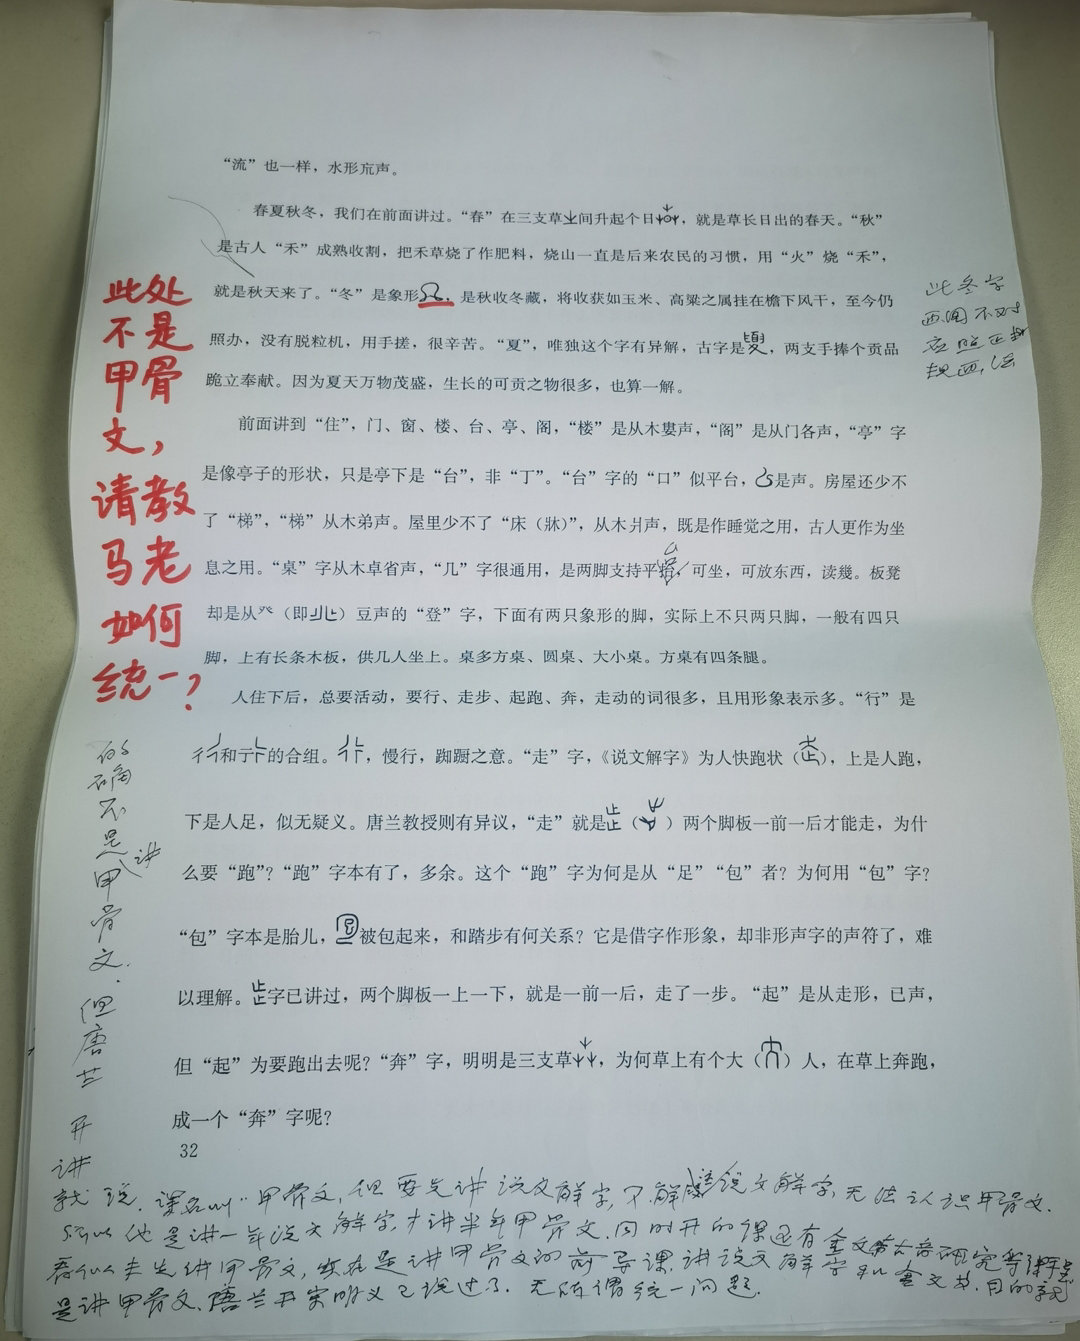 “流”也一样，水形巟声。
春夏秋冬，我们在前面讲过。“春”在三支草间升起个日，就是草长日出的春天。“秋”
是古人“禾”成熟收割，把禾草烧了作肥料，烧山一直是后来农民的习惯，用“火”烧“禾”，
就是秋天来了。“冬”是象形，是秋收冬藏，将收获如玉米、高粱之属挂在檐下风干，至今仍
照办，没有脱粒机，用手搓，很辛苦。“夏”，唯独这个字有异解，古字是，两支手捧个贡品
跪立奉献。因为夏天万物茂盛，生长的可贡之物很多，也算一解。
前面讲到“住”，门、窗、楼、台、亭、阁，“楼”是从木婁声，“阁”是从门各声，“亭”字
是像亭子的形状，只是亭下是“台”，非“丁”。“台”字的“口”似平台，是声。房屋还少不
了“梯”，“梯”从木弟声。屋里少不了“床（牀）”，从木爿声，既是作睡觉之用，古人更作为坐
息之用。“桌”字从木卓省声，“几”字很通用，是两脚支持平，可坐，可放东西，读幾。板凳
却是从癶（即）豆声的“登”字，下面有两只象形的脚，实际上不只两只脚，一般有四只
脚，上有长条木板，供几人坐上。桌多方桌、圆桌、大小桌。方桌有四条腿。
人住下后，总要活动，要行、走步、起跑、奔，走动的词很多，且用形象表示多。“行”是
彳和亍的合组。，慢行，踟蹰之意。“走”字，《说文解字》为人快跑状（），上是人跑，
下是人足，似无疑义。唐兰教授则有异议，“走”就是（）两个脚板一前一后才能走，为什
么要“跑”？“跑”字本有了，多余。这个“跑”字为何是从“足”“包”者？为何用“包”字？
“包”字本是胎儿，被包起来，和踏步有何关系？它是借字作形象，却非形声字的声符了，难
以理解。字已讲过，两个脚板一上一下，就是一前一后，走了一步。“起”是从走形，已声，
但“起”为要跑出去呢？“奔”字，明明是三支草，为何草上有个大（）人，在草上奔跑，
成一个“奔”字呢？
32
此处
不是
甲骨
文，
请教
马老
如何
统一？
此冬字
画圈不对
应照正
规画法
的
确
不
是讲
甲
骨
文.
但
唐
兰
开
讲
就说.课名叫“甲骨文，但要先讲说文解字，不解说文解字，无法认识甲骨文.
所以他是讲一年说文解字，才讲半年甲骨文.同时开的课还有金文古音研究等课，
看似未先讲甲骨文，实在是讲甲骨文的前导课.讲说文解字和金文其目的就
是讲甲骨文.唐兰开宗明义已说过了.无所谓统一问题.